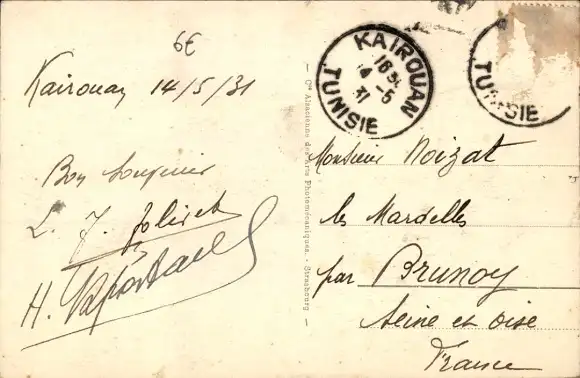 6E
Kairouan 14/5/31
Bon Souvenir
L. J. Jolivet
H.
KAIROUAN
TUNISIE
TUNISIE
Cie Alsacienne des Arts Photomécaniques. - Strasbourg
Monsieur Noizat
les Mardelles
par Brunoy
Seine et Oise
France